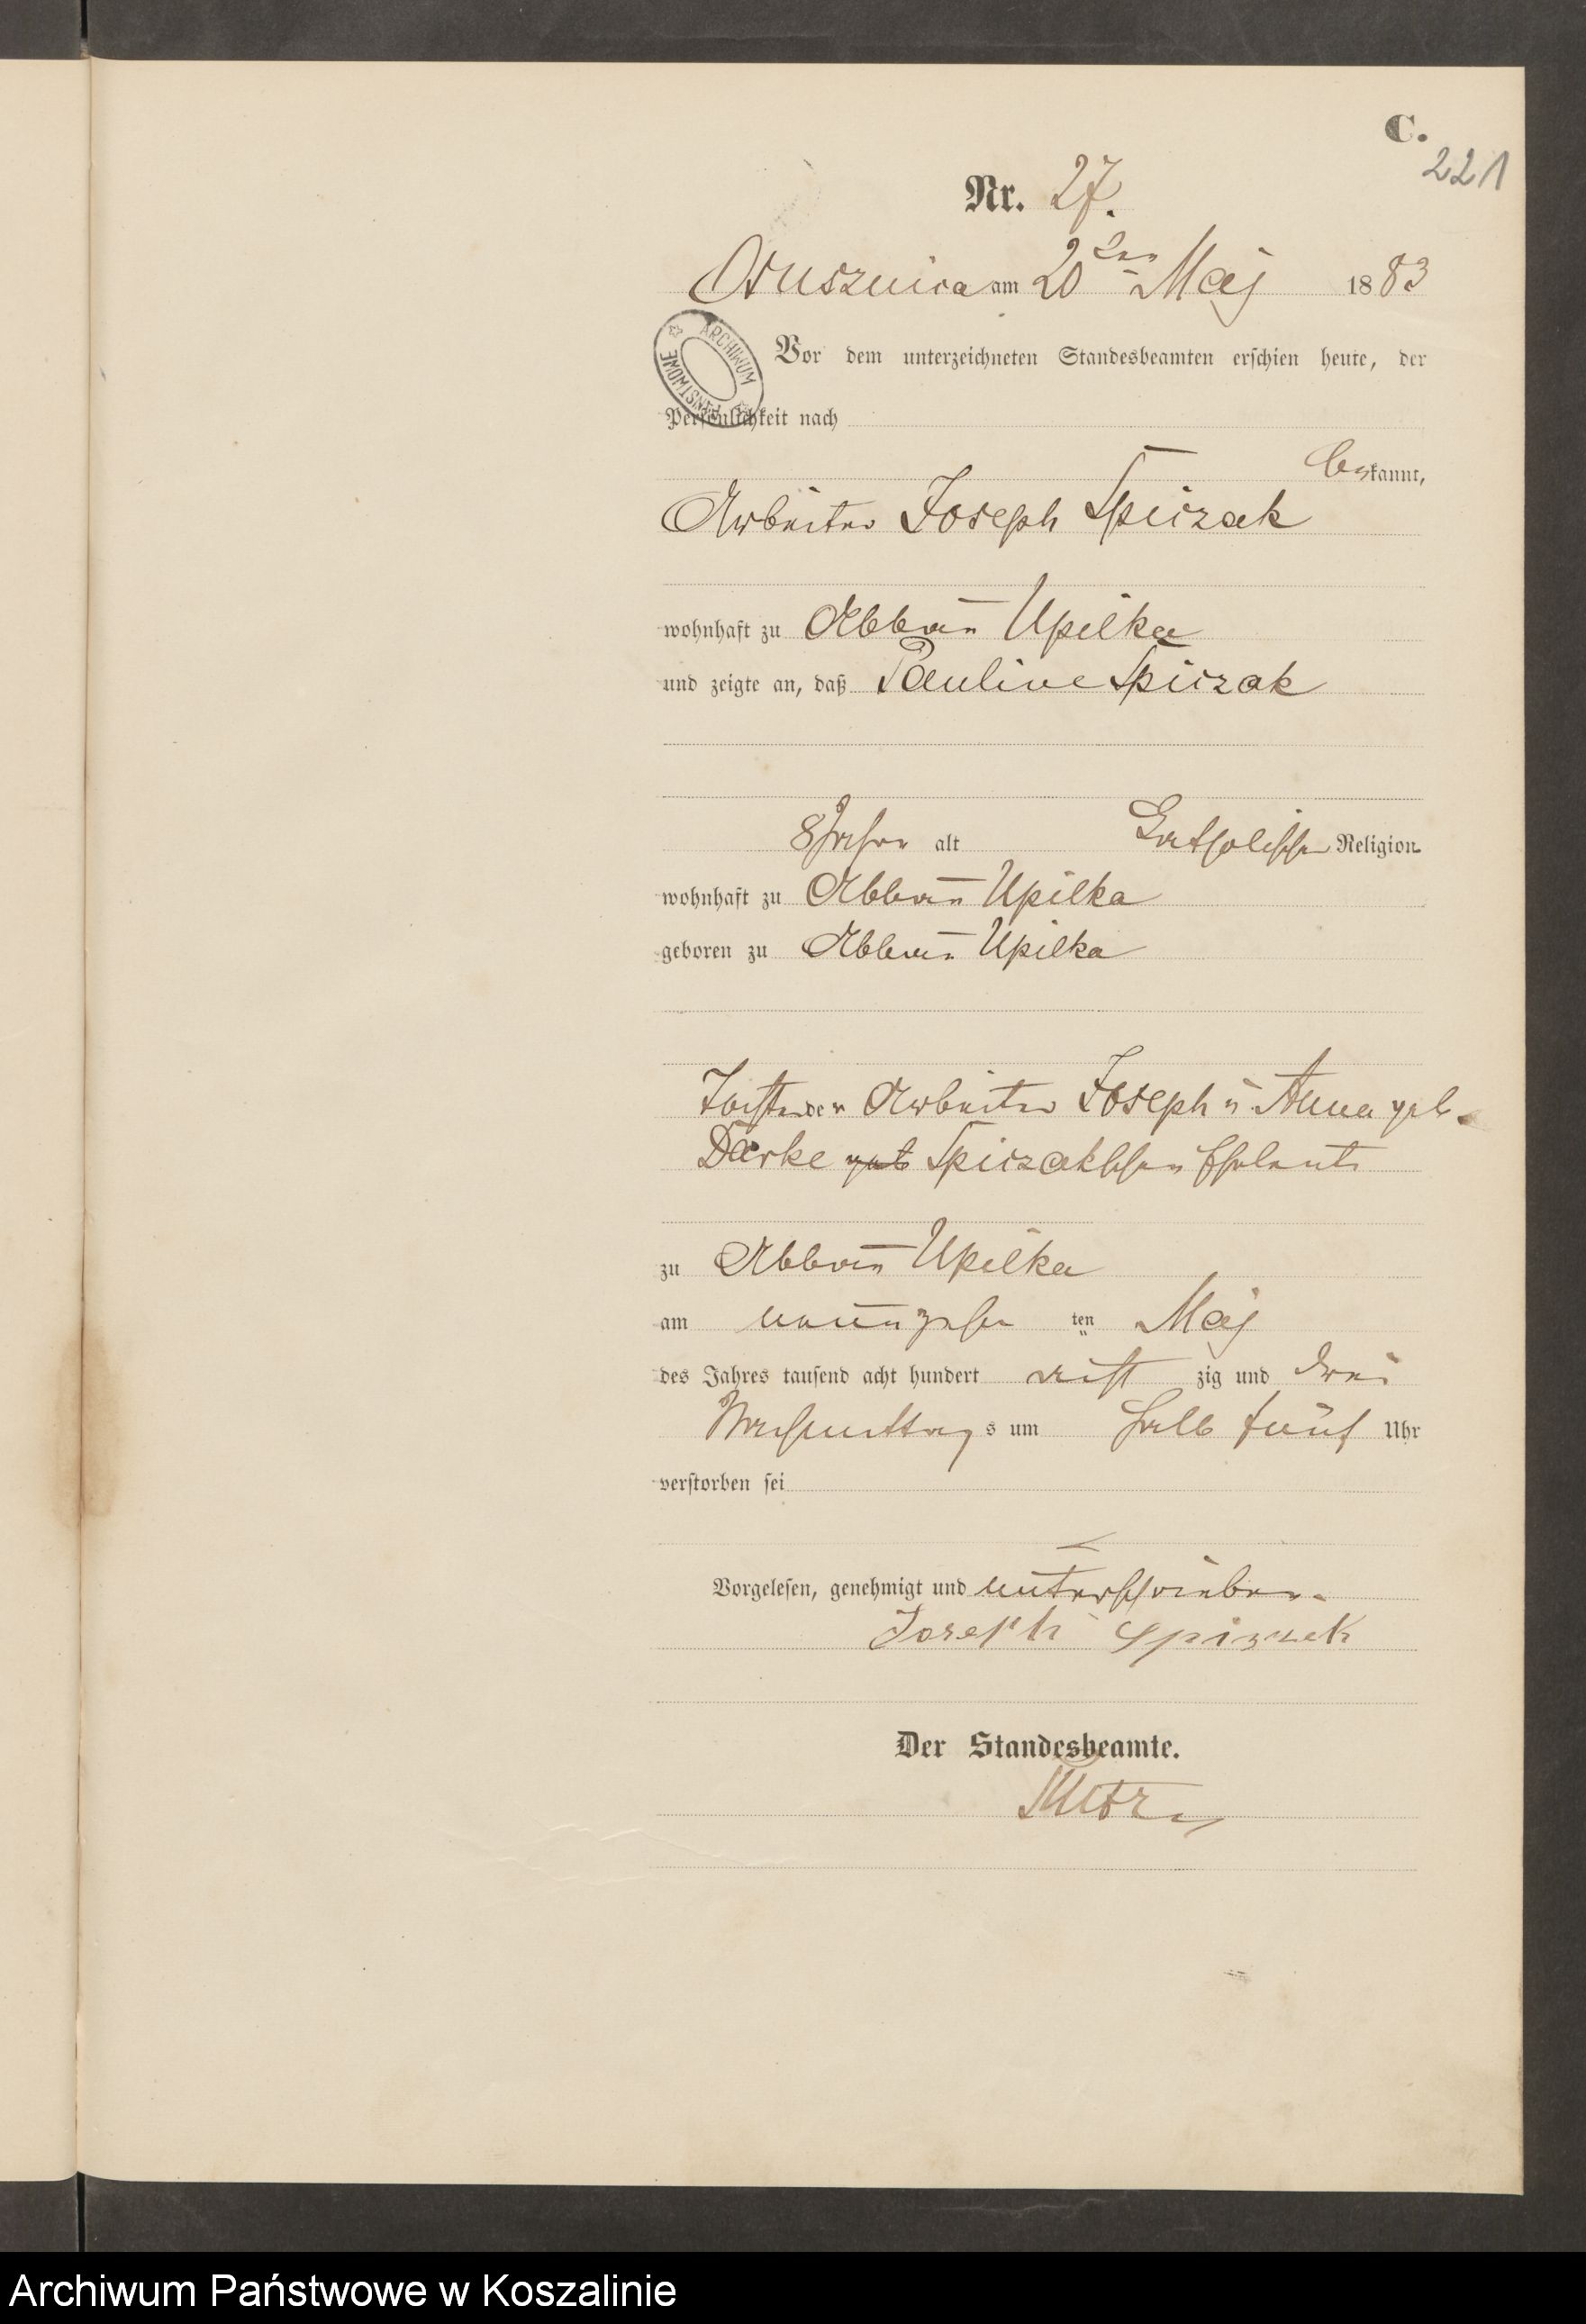 C.
221
Nr. 27.
Ossusznica am 20ten Maj 1883
ARCHIWUM PAŃSTWOWE
Vor dem unterzeichneten Standesbeamten erschien heute, der
Persönlichkeit nach
bekannt,
Arbeiter Joseph Spiczak
wohnhaft zu Abbau Upilka
und zeigte an, daß Pauline Spiczak
8 Jahre alt Katholischer Religion
wohnhaft zu Abbau Upilka
geboren zu Abbau Upilka
Tochter der Arbeiter Joseph u Anna geb.
Darke geb Spiczakschen Eheleute
zu Abbau Upilka
am neunzehn ten Maj
des Jahres tausend acht hundert acht zig und drei
Nachmittags um halb fünf Uhr
verstorben sei
Vorgelesen, genehmigt und unterschrieben.
Joseph Spiczak
Der Standesbeamte.
Archiwum Państwowe w Koszalinie